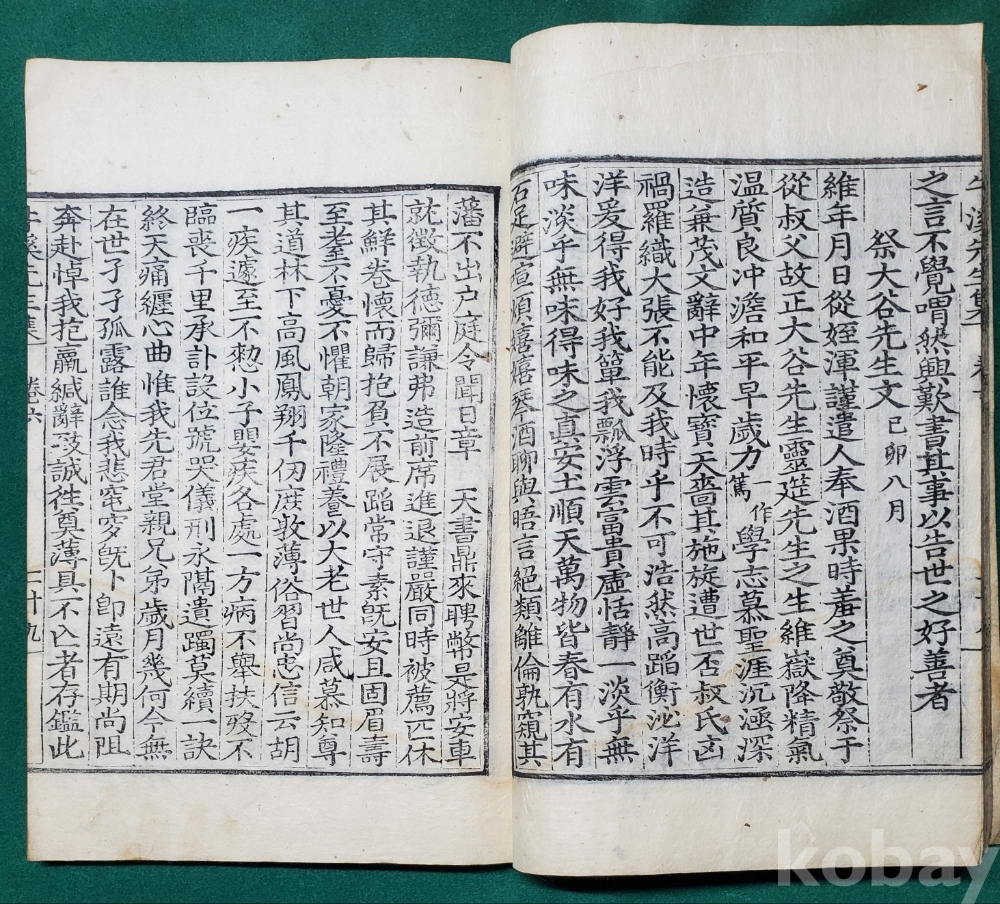 之言不覺喟然興歎書其事以告世之好善者
祭大谷先生文 己卯八月
維年月日從姪渾謹遣人奉酒果時羞之奠敬祭于
從叔父故正大谷先生靈筵先生之生維嶽降精氣
温質良冲澹和平早歲力 一作篤 學志慕聖涯沉涵深
造兼茂文辭中年懷寶天嗇其施旋遭世否叔氏凶
禍羅織大張不能及我時乎不可浩然高蹈衡泌洋
洋爰得我好我簞我瓢浮雲富貴虛恬靜一淡乎無
味淡乎無味得味之真安土順天萬物皆春有水有
石足避喧煩嬉嬉琴酒聊與晤言絕類離倫孰窺其
藩不出户庭令聞日章 天書鼎來聘幣是將安車
就徵執德彌謙弗造前席進退謹嚴同時被薦匹休
其鮮卷懷而歸抱負不展蹈常守素旣安且固眉壽
至耋不憂不懼朝家隆禮養以大老世人咸慕知尊
其道林下高風鳳翔千仞庶敦薄俗習尚忠信云胡
一疾遽至不憖小子嬰疾各處一方病不舉扶歿不
臨喪千里承訃設位號哭儀刑永隔遺躅莫續一訣
終天痛纏心曲惟我先君堂親兄弟歲月幾何今無
在世孑孑孤露誰念我悲窀穸旣卜卽遠有期尚阻
奔赴悼我抱羸緘辭致誠徃奠薄具不亾者存鑑此
牛溪先生集 卷六 二十九
kobay